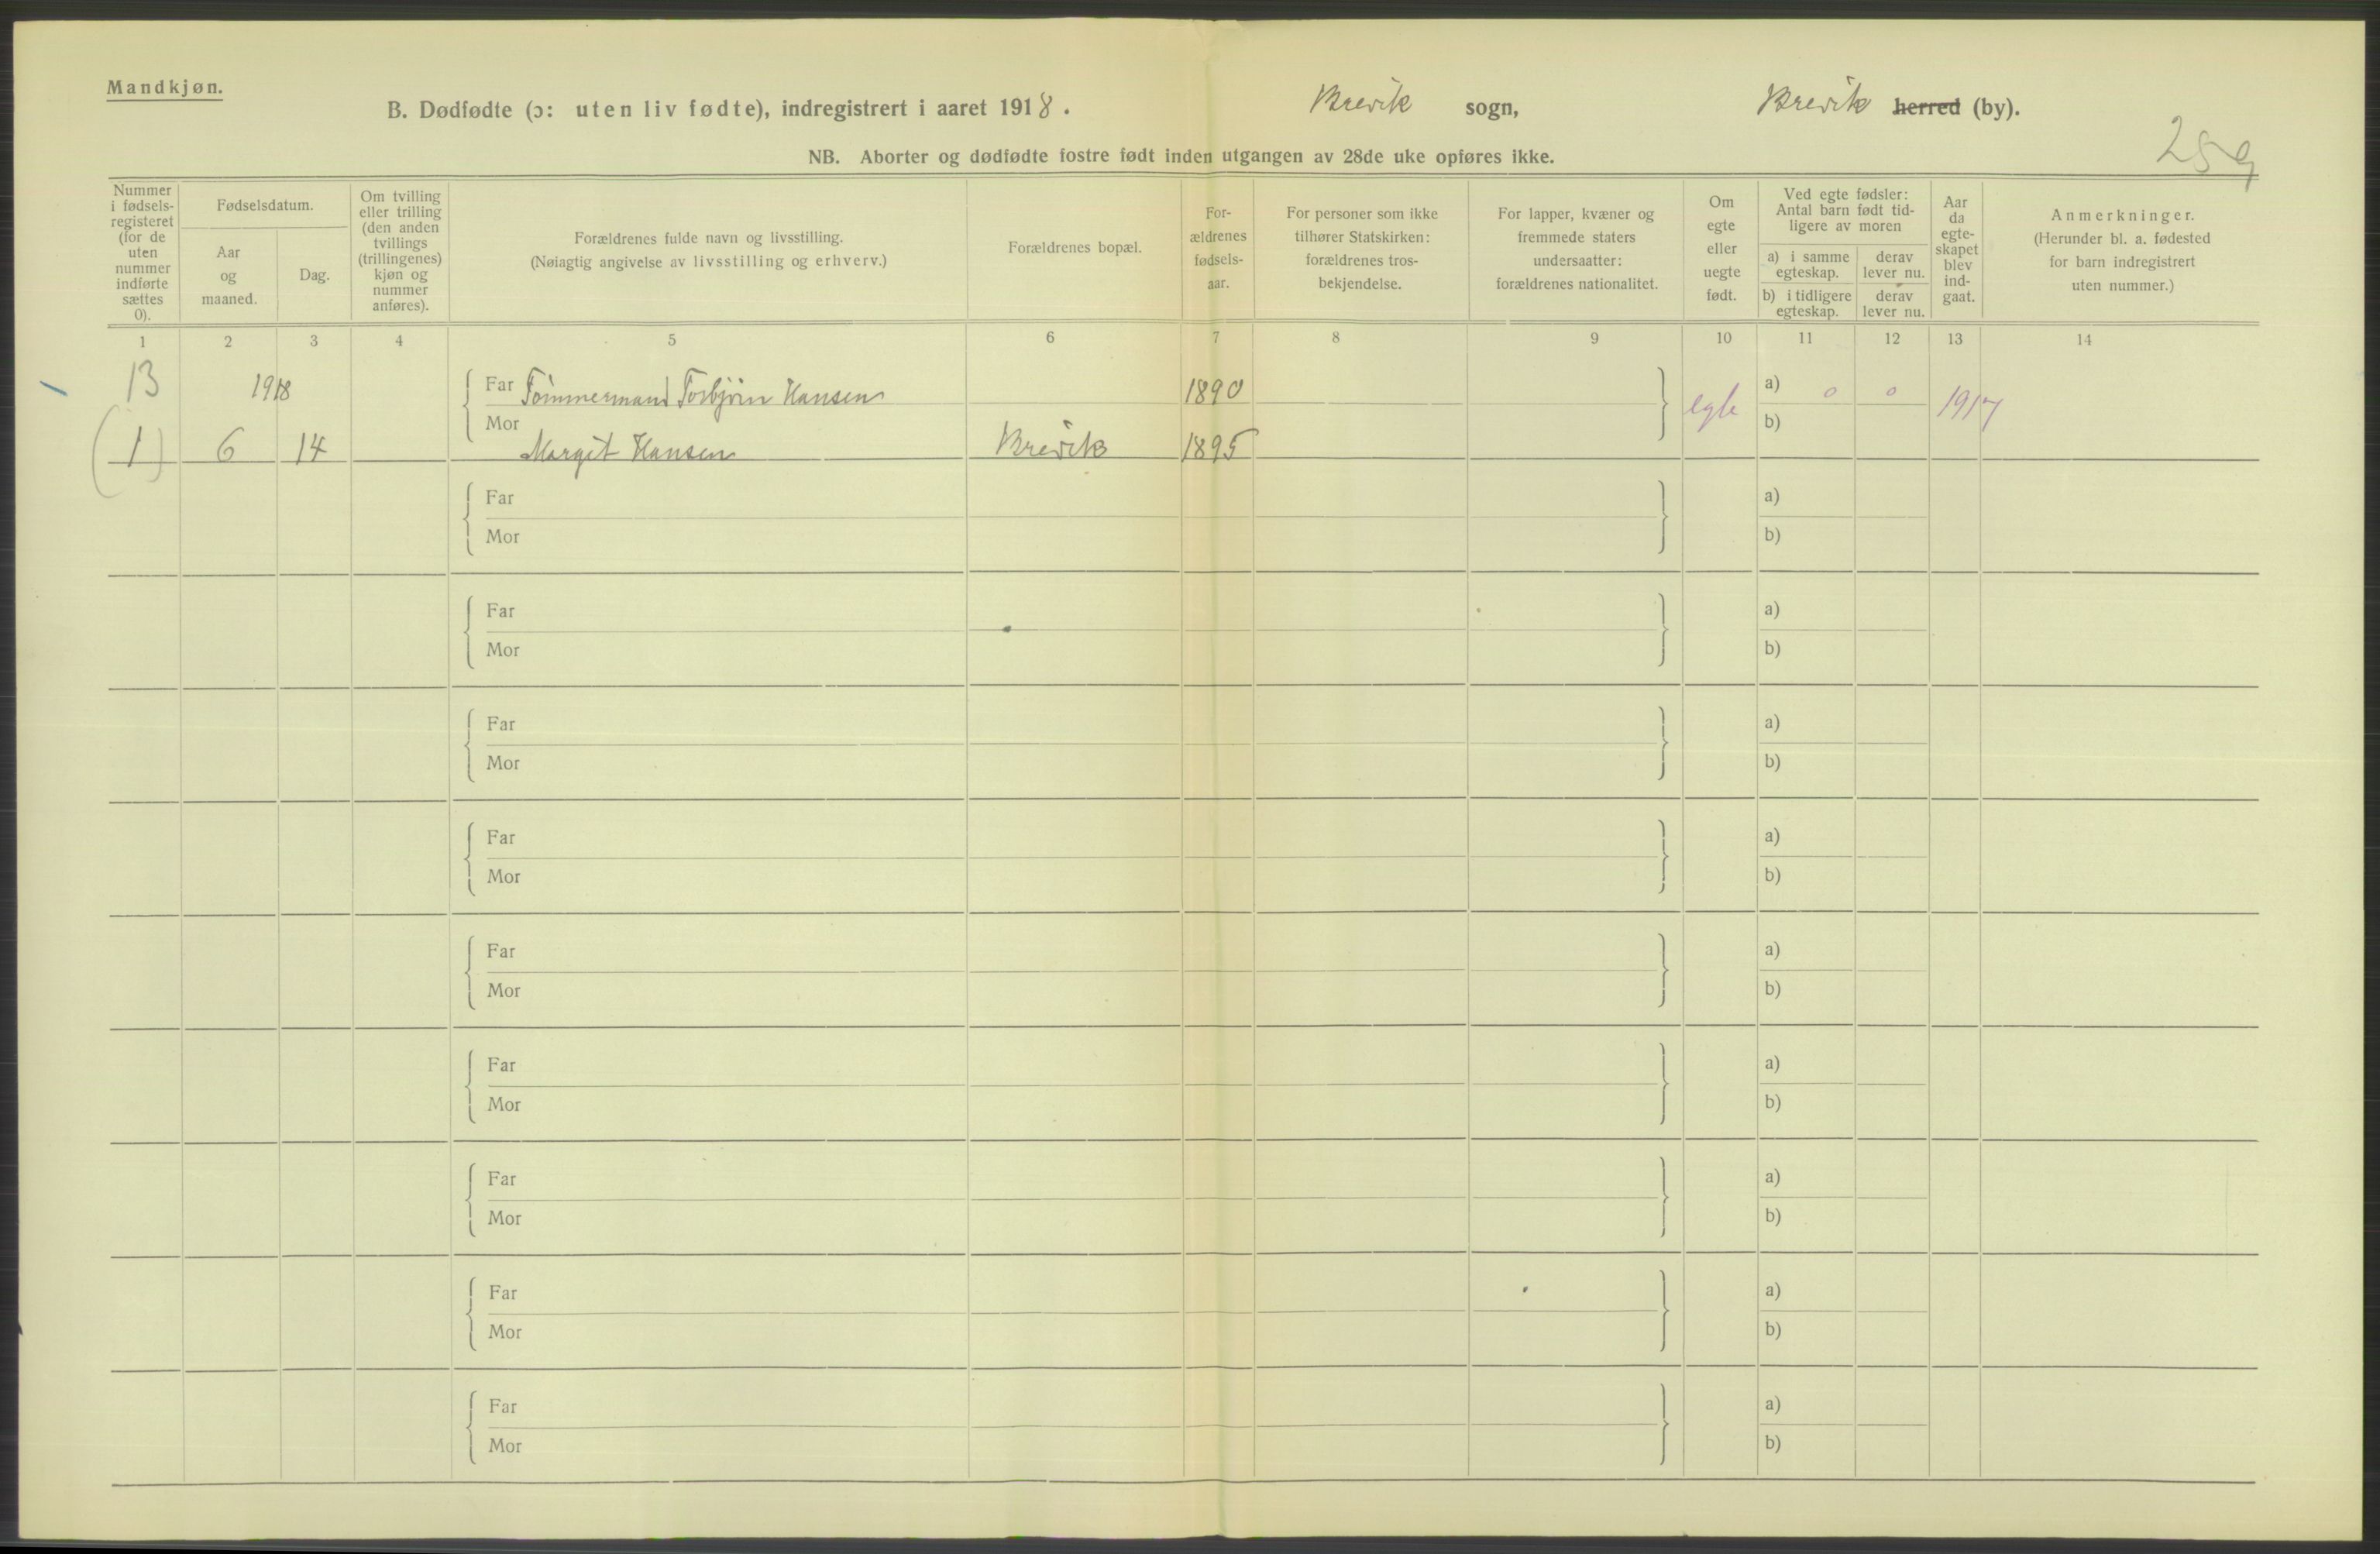 Mandkjøn.
B. Dødfødte (ɔ: uten liv fødte), indregistrert i aaret 1918. Brevik sogn, Brevik herred (by).
259
NB. Aborter og dødfødte fostre født inden utgangen av 28de uke opføres ikke.
Nummer i fødsels-registeret (for de uten nummer indførte sættes 0).
Fødselsdatum.
Aar og maaned.
Dag.
Om tvilling eller trilling (den anden tvillings (trillingenes) kjøn og nummer anføres).
Forældrenes fulde navn og livsstilling.
(Nøiagtig angivelse av livsstilling og erhverv.)
Forældrenes bopæl.
For-ældrenes fødsels-aar.
For personer som ikke tilhører Statskirken: forældrenes tros-bekjendelse.
For lapper, kvæner og fremmede staters undersaatter: forældrenes nationalitet.
Om egte eller uegte født.
Ved egte fødsler: Antal barn født tid-ligere av moren
a) i samme egteskap.
derav lever nu.
b) i tidligere egteskap.
derav lever nu.
Aar da egte-skapet blev ind-gaat.
Anmerkninger.
(Herunder bl. a. fødested for barn indregistrert uten nummer.)
1 2 3 4 5 6 7 8 9 10 11 12 13 14
13 1918 Far Tømmermand Torbjørn Hansen 1890 egte a) 0 0 1917
Mor b)
(1) 6 14 Margit Hansen Brevik 1895
Far a)
Mor b)
Far a)
Mor b)
Far a)
Mor b)
Far a)
Mor b)
Far a)
Mor b)
Far a)
Mor b)
Far a)
Mor b)
Far a)
Mor b)
Far a)
Mor b)